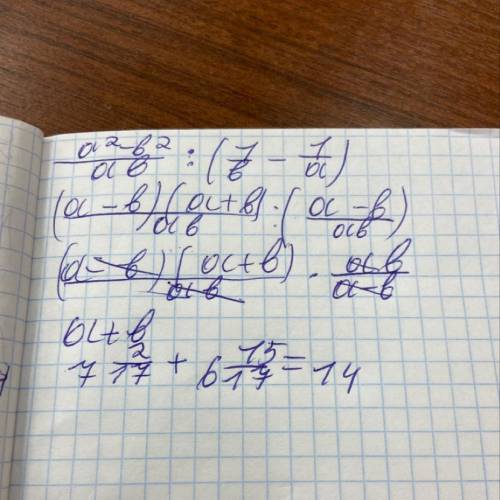 a²-b²/ab : (1/b - 1/a)
(a-b)(a+b)/ab : (a-b/ab)
(a-b)(a+b)/ab · ab/a-b
a+b
7 2/17 + 6 15/17 = 14